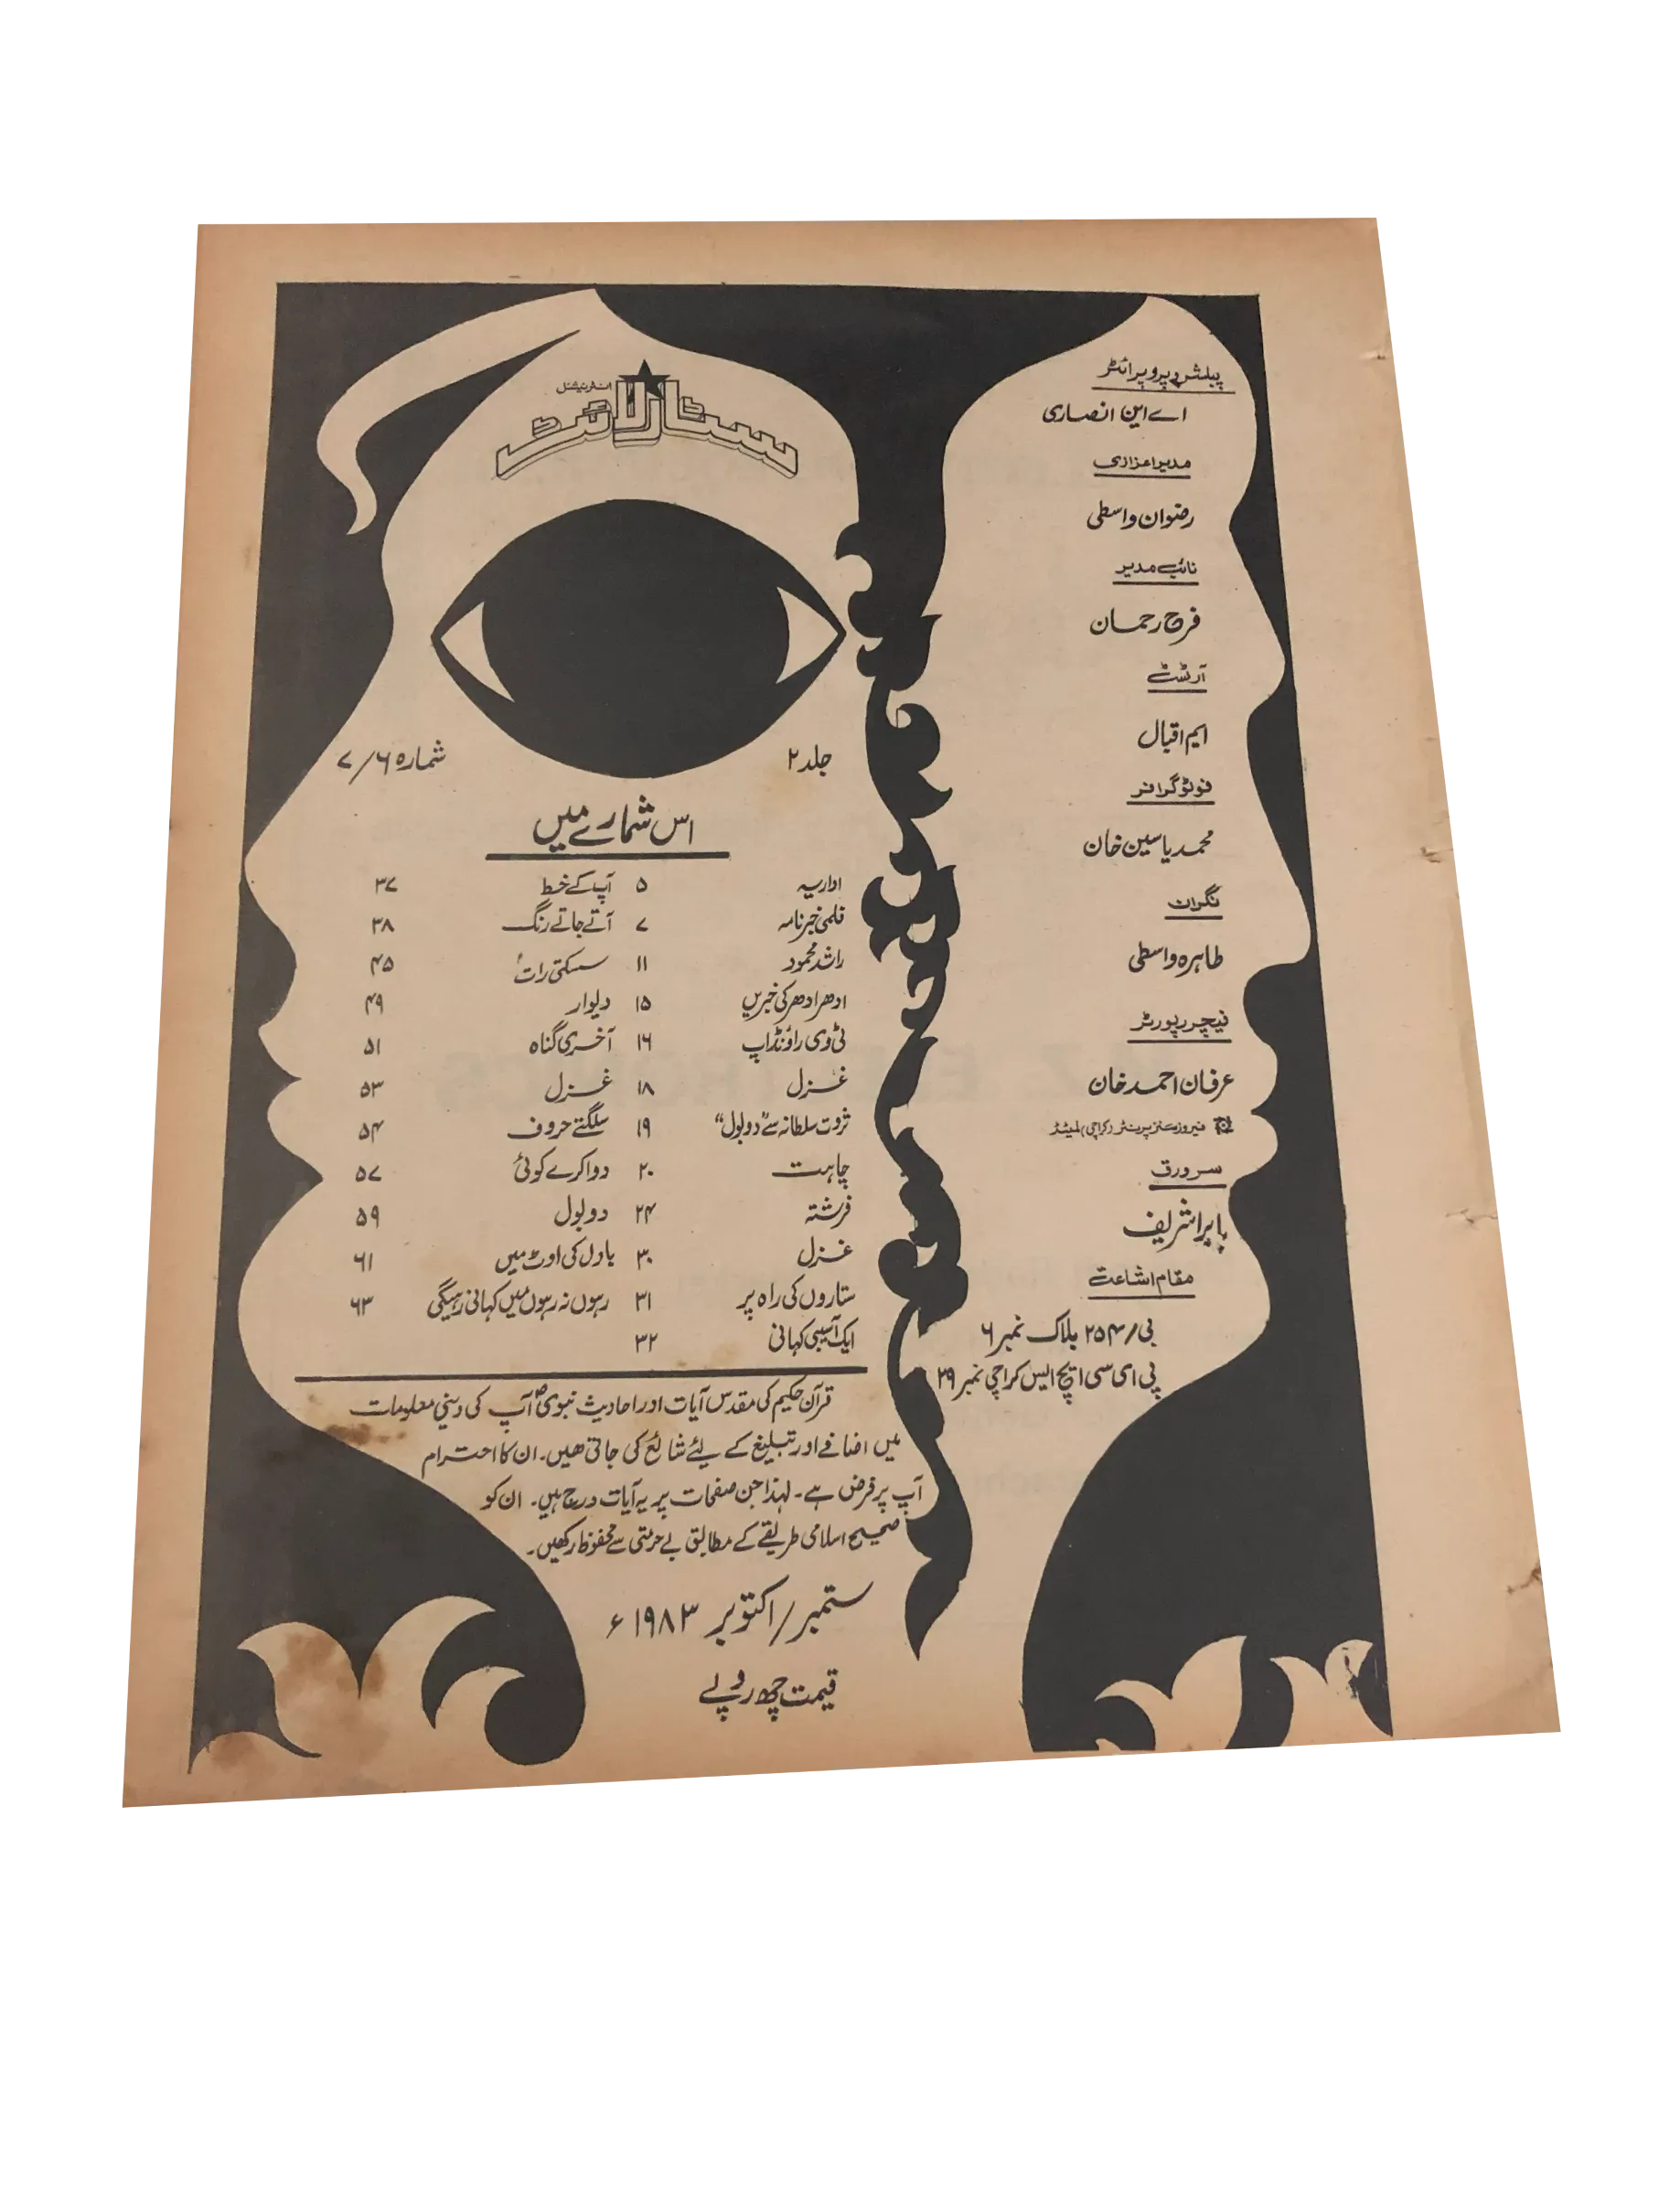 پبلشر و پروپرائٹر
اے این انصاری
مدیر اعزازی
رضوان واسطی
نائب مدیر
فرح رحمان
آرٹسٹ
ایم اقبال
فوٹوگرافر
محمد یاسین خان
نگران
طاہرہ واسطی
فیچر رپورٹر
عرفان احمد خان
فیروز سنز پرنٹر (کراچی) لمیٹڈ
سرورق
بابرا شریف
مقام اشاعت
بی/۲۵۴ بلاک نمبر ۶
پی ای سی ایچ ایس کراچی نمبر ۲۹
انٹرنیشنل
سٹار لائٹ
جلد ۲
شمارہ ۶/۷
اس شمارے میں
اداریہ ۵ آپ کے خط ۳۷
فلمی خبرنامہ ۷ آتے جاتے رنگ ۳۸
راشد محمود ۱۱ سسکتی رات ۴۵
ادھر ادھر کی خبریں ۱۵ دیوار ۴۹
ٹی وی راؤنڈ اپ ۱۶ آخری گناہ ۵۱
غزل ۱۸ غزل ۵۳
ثروت سلطانہ سے "دو بول" ۱۹ سلگتے حروف ۵۴
چاہت ۲۰ دوا کرے کوئی ۵۷
فرشتہ ۲۴ دو بول ۵۹
غزل ۳۰ بادل کی اوٹ میں ۶۱
ستاروں کی راہ پر ۳۱ رہوں نہ رہوں میں کہانی رہیگی ۶۳
ایک آسیبی کہانی ۳۲
قرآن حکیم کی مقدس آیات اور احادیث نبویؐ آپ کی دینی معلومات
میں اضافے اور تبلیغ کے لئے شائع کی جاتی ھیں۔ ان کا احترام
آپ پر فرض ہے۔ لہٰذا جن صفحات پر یہ آیات درج ہیں۔ ان کو
صحیح اسلامی طریقے کے مطابق بے حرمتی سے محفوظ رکھیں۔
ستمبر/اکتوبر ۱۹۸۳ء
قیمت چھ روپے